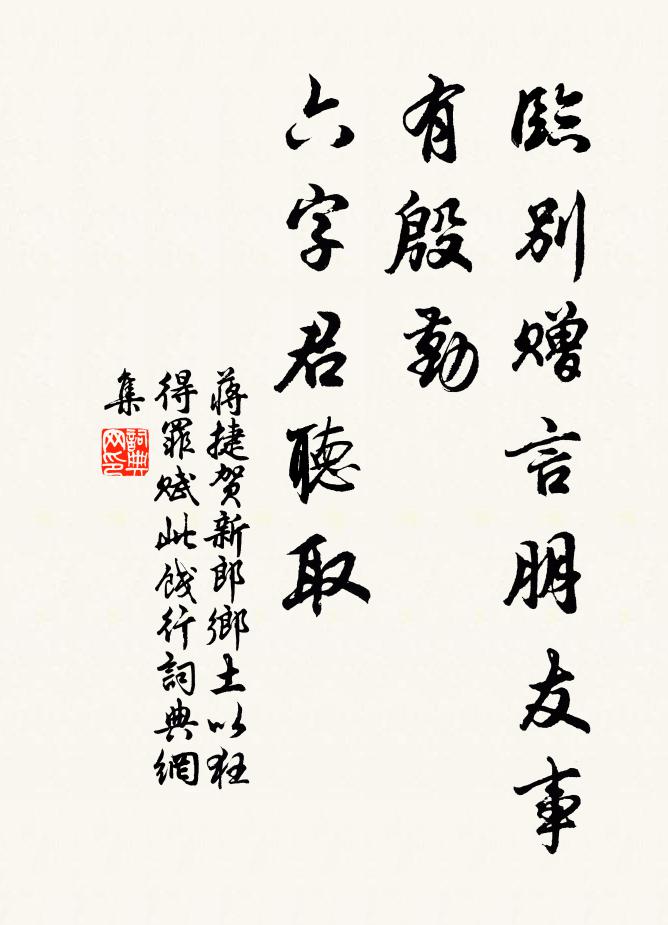 臨別贈言朋友事
有殷勤
六字君聽取
蔣捷賀新郎鄉土以狂
得罪賦此餞行詞典網
集
詞典
网印